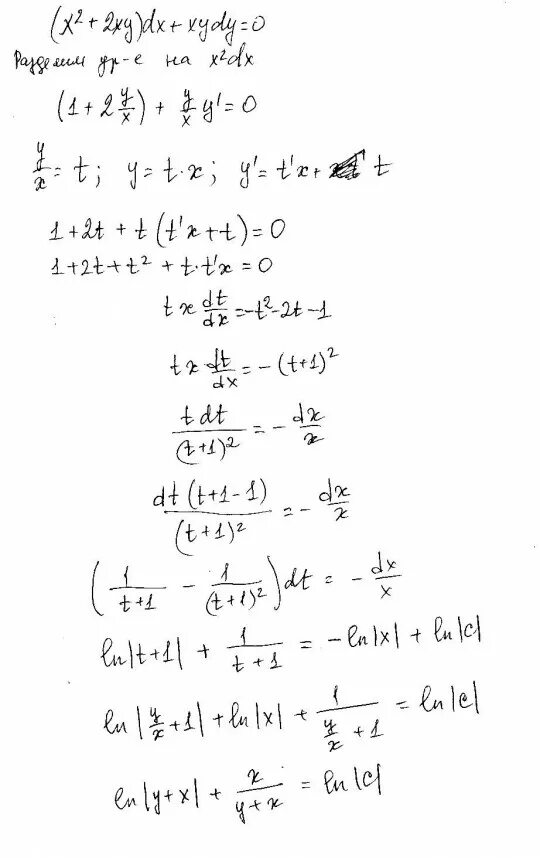 (x² + 2xy)dx + xydy = 0
Разделим ур-е на x²dx
(1 + 2 y/x) + y/x y' = 0
y/x = t; y = t·x; y' = t'x + t
1 + 2t + t(t'x + t) = 0
1 + 2t + t² + t·t'x = 0
tx dt/dx = -t² - 2t - 1
tx dt/dx = -(t+1)²
tdt/(t+1)² = - dx/x
dt(t+1-1)/(t+1)² = - dx/x
(1/(t+1) - 1/(t+1)²)dt = - dx/x
ln|t+1| + 1/(t+1) = -ln|x| + ln|c|
ln|y/x + 1| + ln|x| + 1/(y/x + 1) = ln|c|
ln|y+x| + x/(y+x) = ln|c|